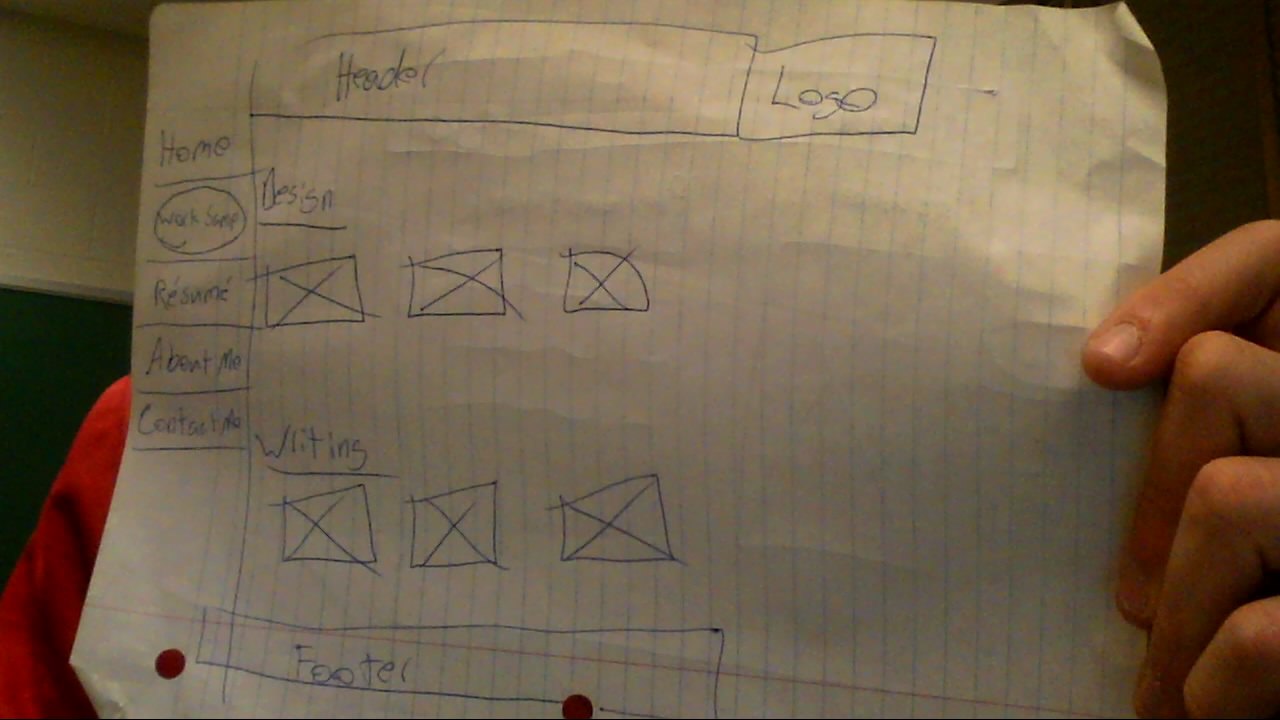 Header
Logo
Home
Work Samp
Résumé
About Me
Contact Me
Design
Writing
Footer